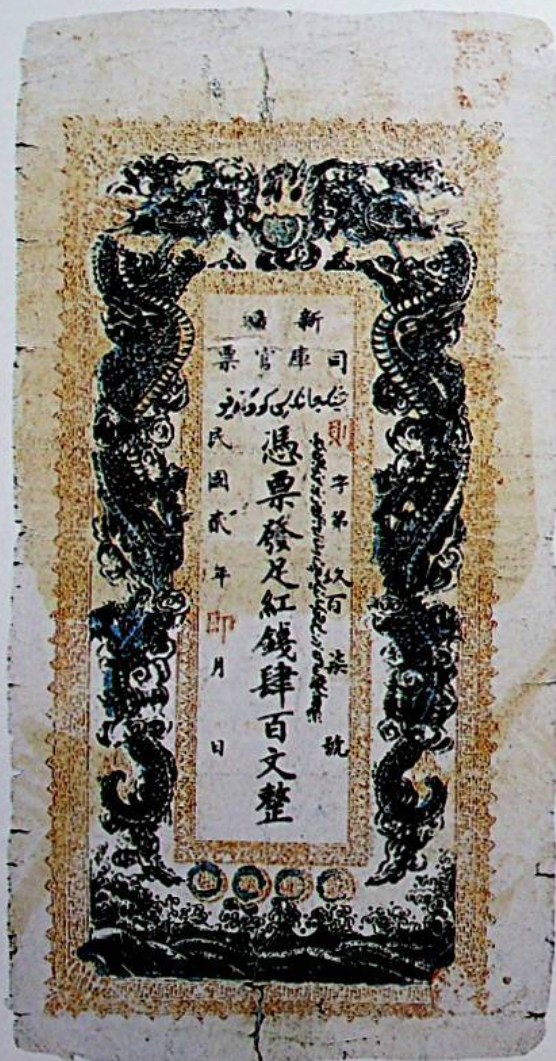 新疆
司庫官票
則字第玖百柒號
憑票發足紅錢肆百文整
民國貳年印月日